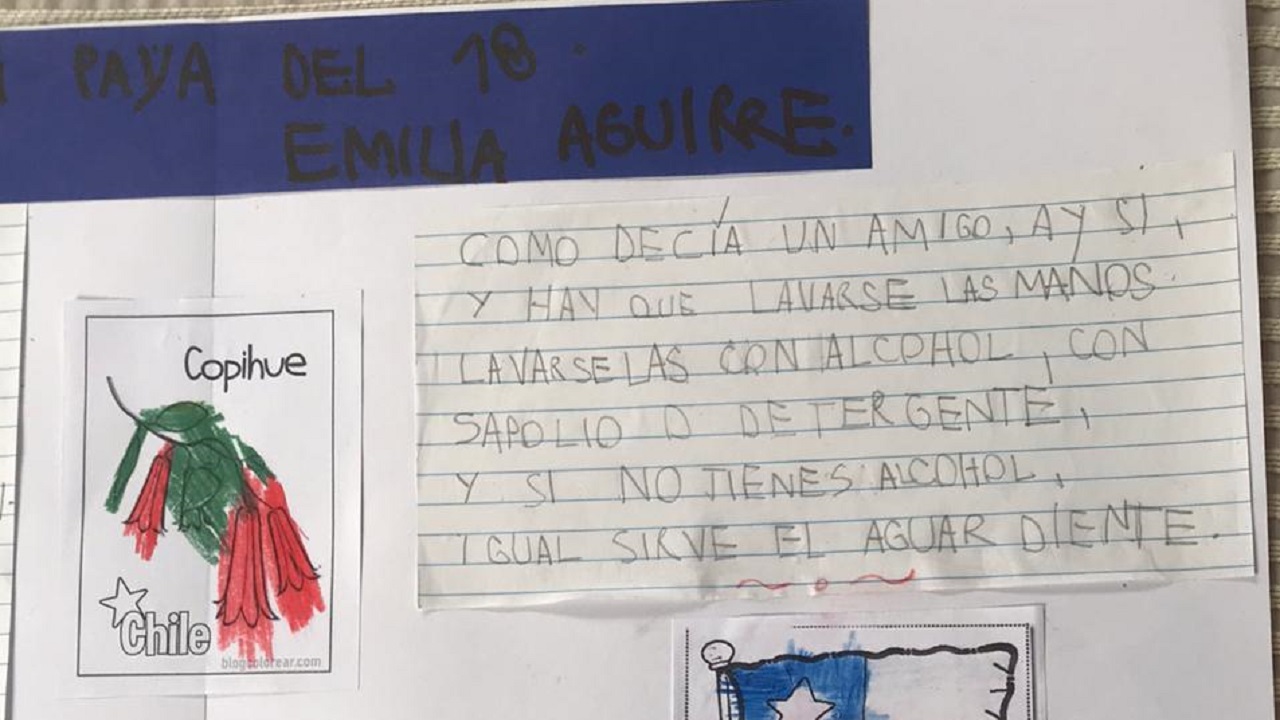 PAYA DEL 18.
EMILIA AGUIRRE.
COMO DECÍA UN AMIGO, AY SÍ,
Y HAY QUE LAVARSE LAS MANOS.
LAVARSELAS CON ALCOHOL, CON
SAPOLIO O DETERGENTE,
Y SI NO TIENES ALCOHOL,
IGUAL SIRVE EL AGUAR DIENTE.
Copihue
Chile
blogcolorear.com